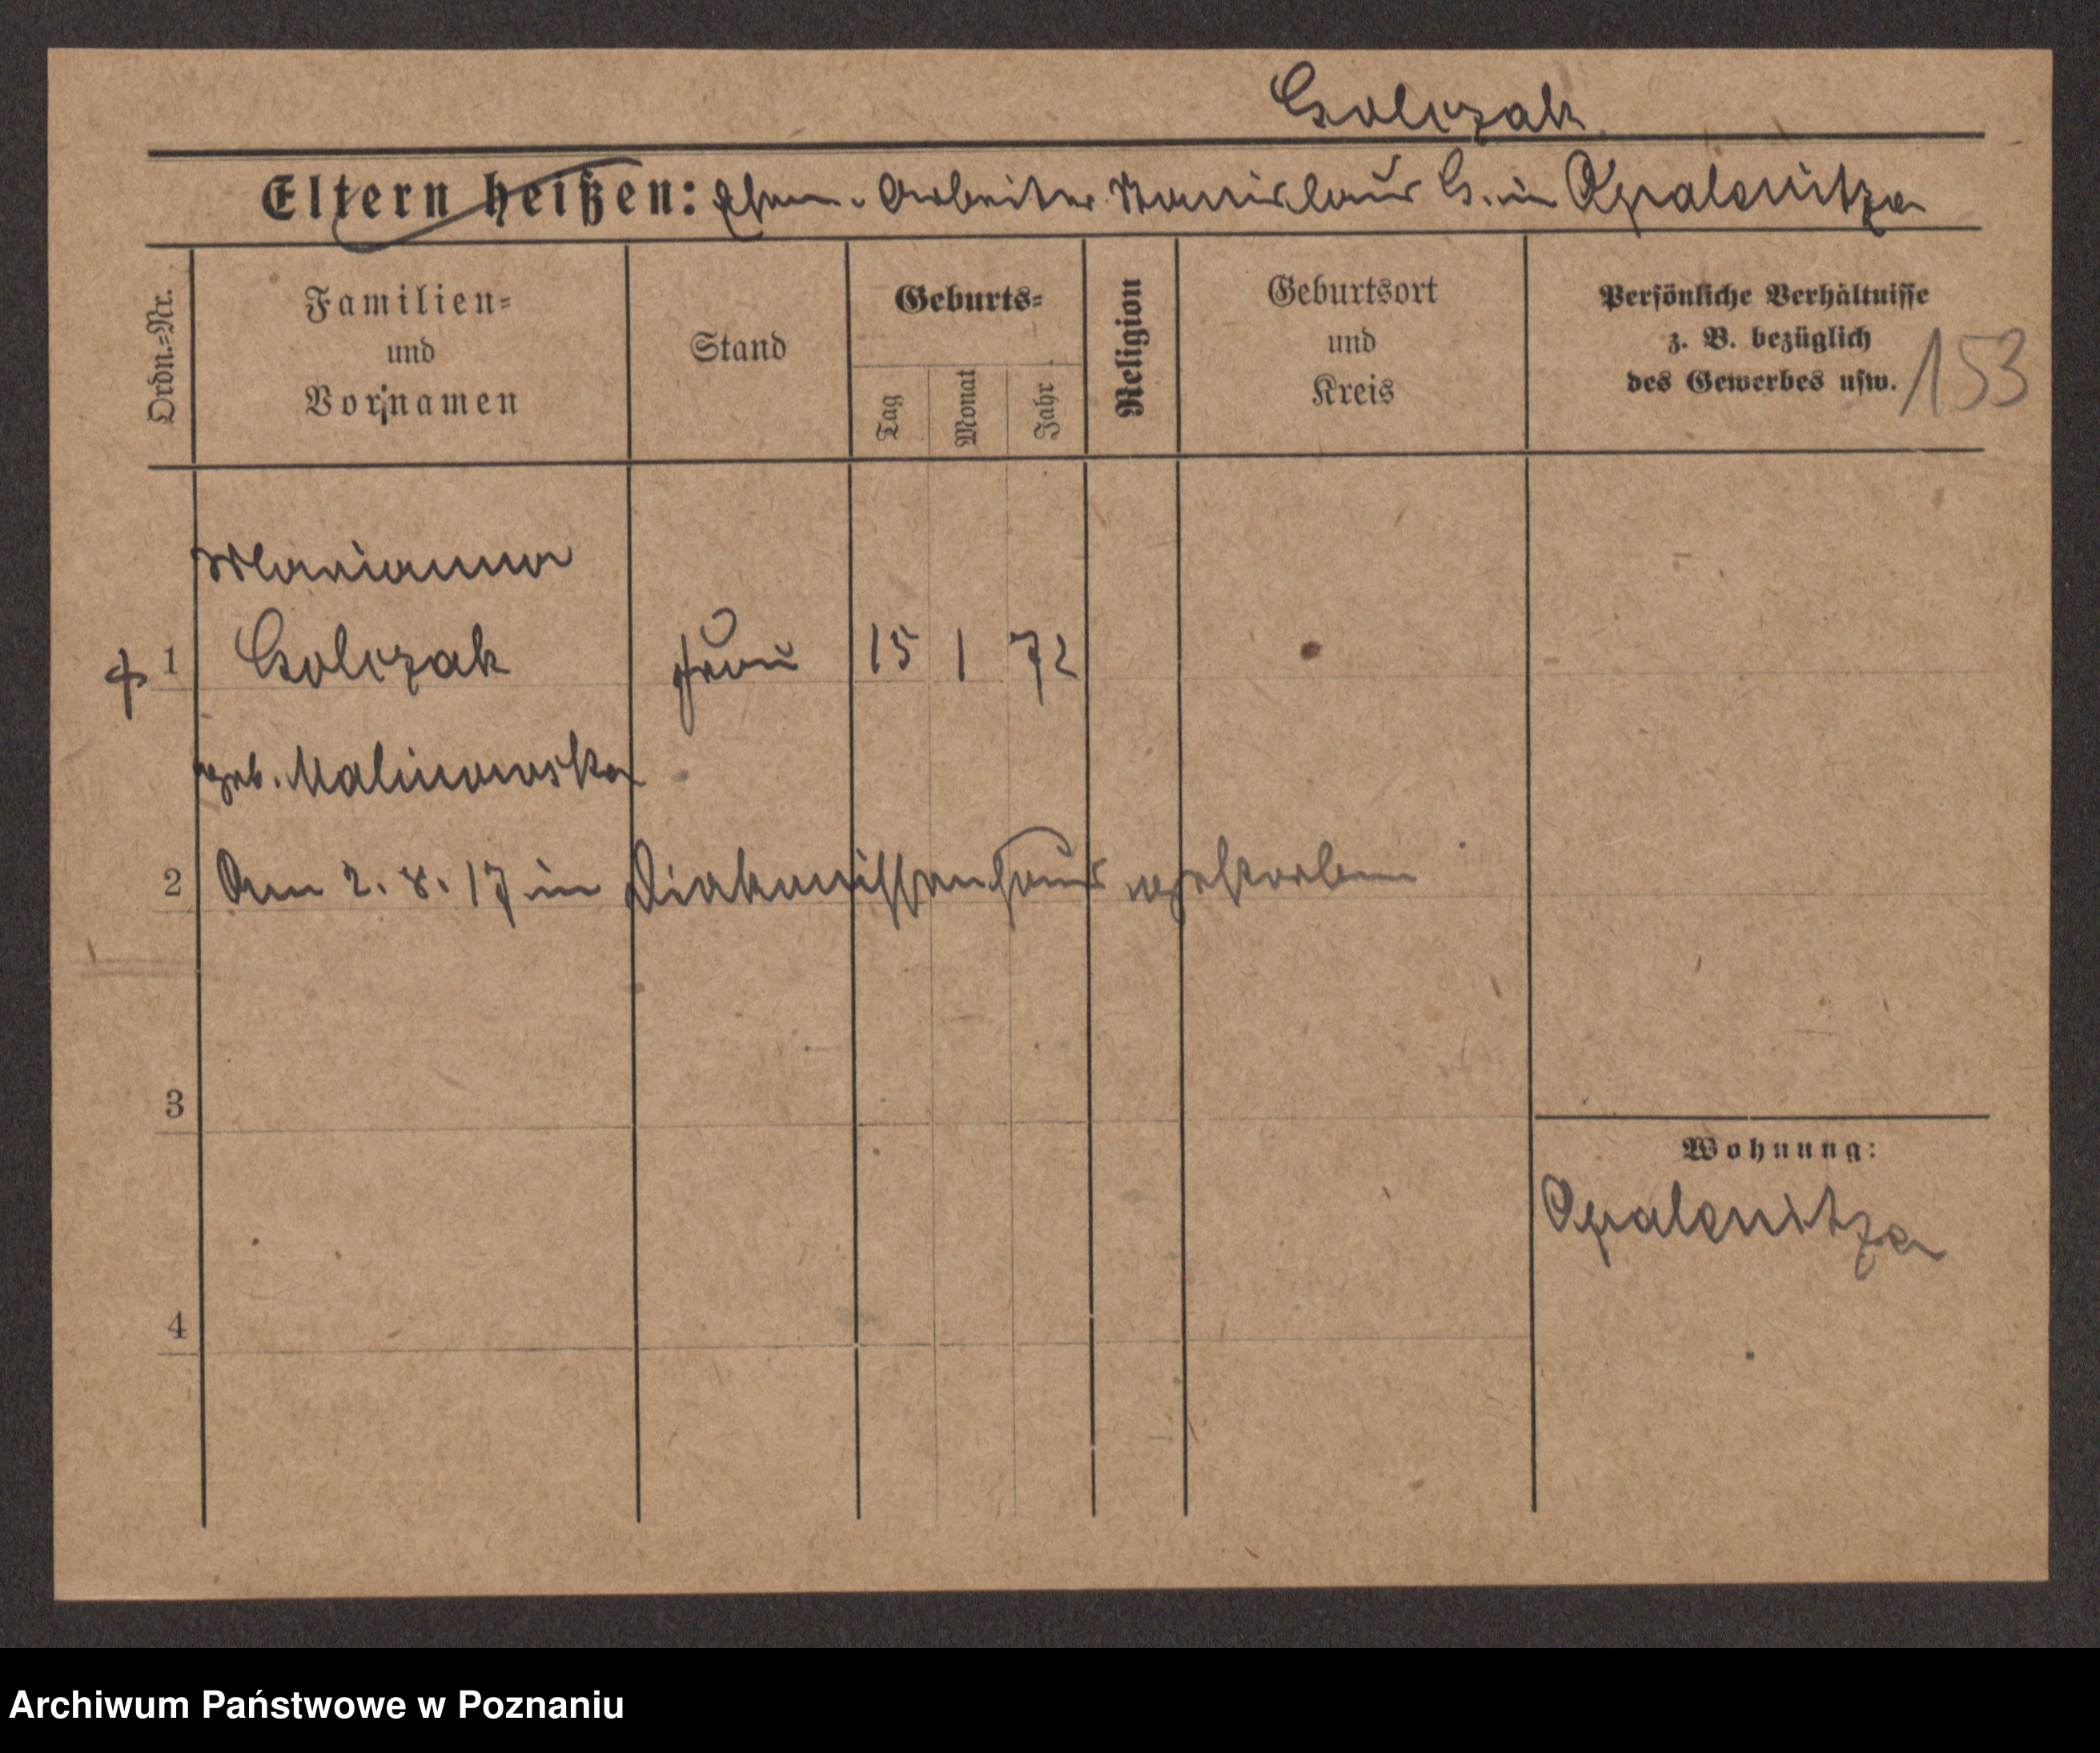 Golczak
Eltern heißen: Ehem. Arbeiter Stanislaus G. in Opalenitza
Ordn.=Nr.
Familien=
und
Vornamen
Stand
Geburts=
Tag
Monat
Jahr
Religion
Geburtsort
und
Kreis
Persönliche Verhältnisse
z. B. bezüglich
des Gewerbes usw.
153
Marianna
† 1 Golczak Frau 15 1 72
geb. Malinowska
2 Am 2. 8. 17 in Diakonissenhaus gestorben
3
Wohnung:
Opalenitza
4
Archiwum Państwowe w Poznaniu